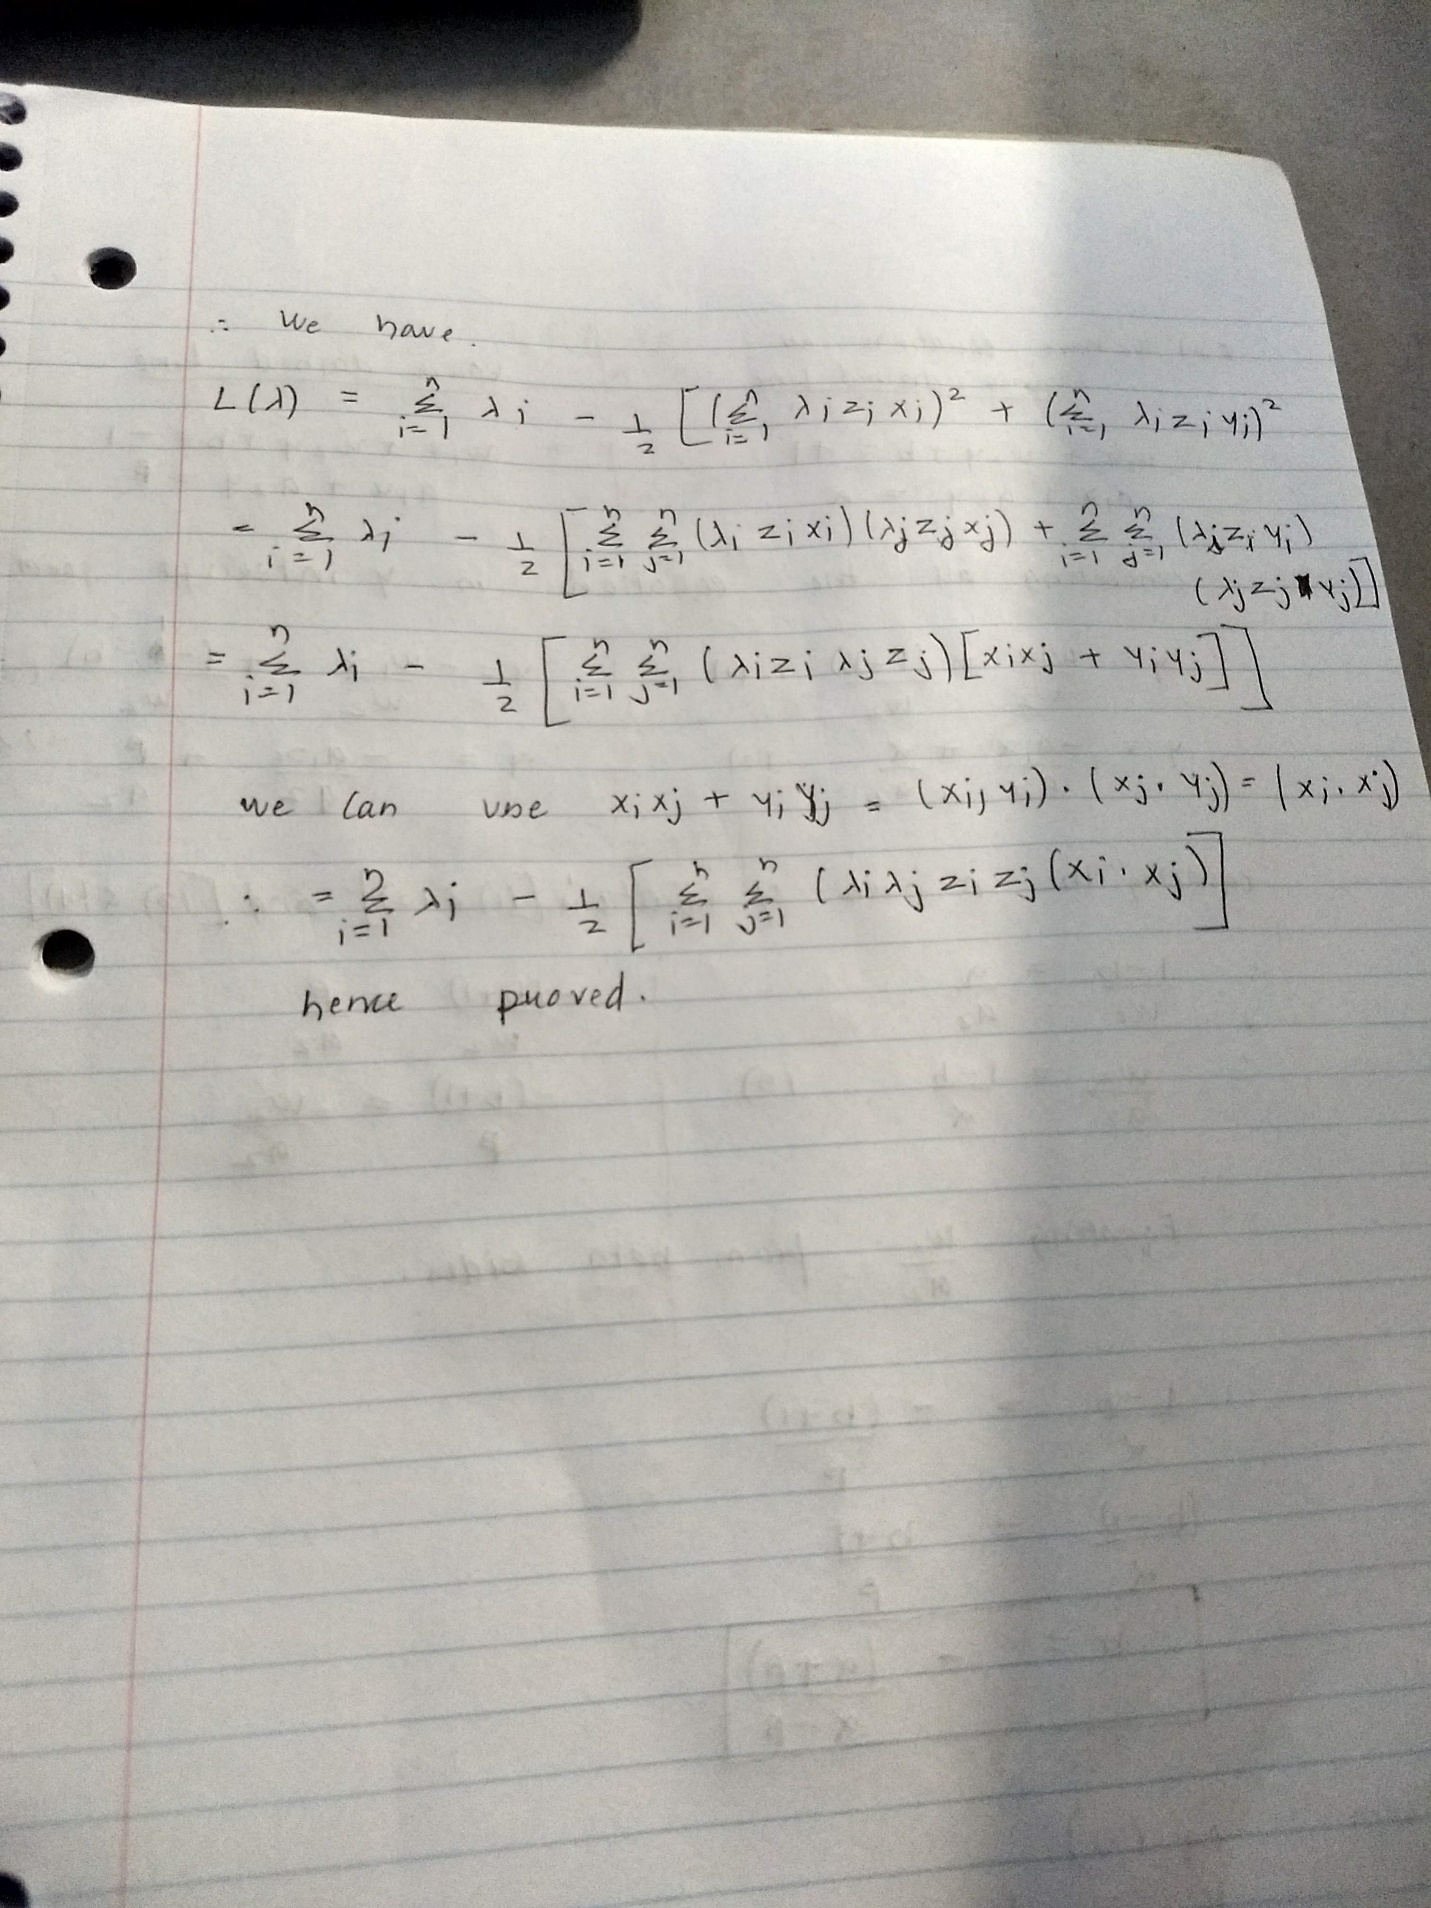 ∴ We have.
L(λ) = Σ_{i=1}^{n} λi - 1/2 [(Σ_{i=1}^{n} λi zi xi)² + (Σ_{i=1}^{n} λi zi yi)²
= Σ_{i=1}^{n} λi - 1/2 [Σ_{i=1}^{n} Σ_{j=1}^{n} (λi zi xi) (λj zj xj) + Σ_{i=1}^{n} Σ_{j=1}^{n} (λj zi yi)
(λj zj yj)]
= Σ_{i=1}^{n} λi - 1/2 [Σ_{i=1}^{n} Σ_{j=1}^{n} (λi zi λj zj) [xi xj + yi yj]]
we can use xi xj + yi yj = (xi, yi) · (xj · yj) = (xi · xj)
∴ = Σ_{i=1}^{n} λi - 1/2 [Σ_{i=1}^{n} Σ_{j=1}^{n} (λi λj zi zj (xi · xj)]
hence proved.